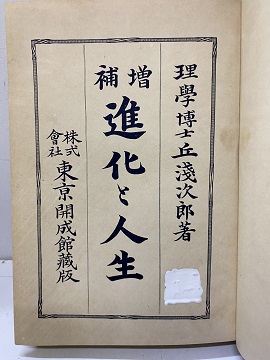 理學博士丘淺次郎著
增補
進化と人生
株式會社
東京開成館藏版